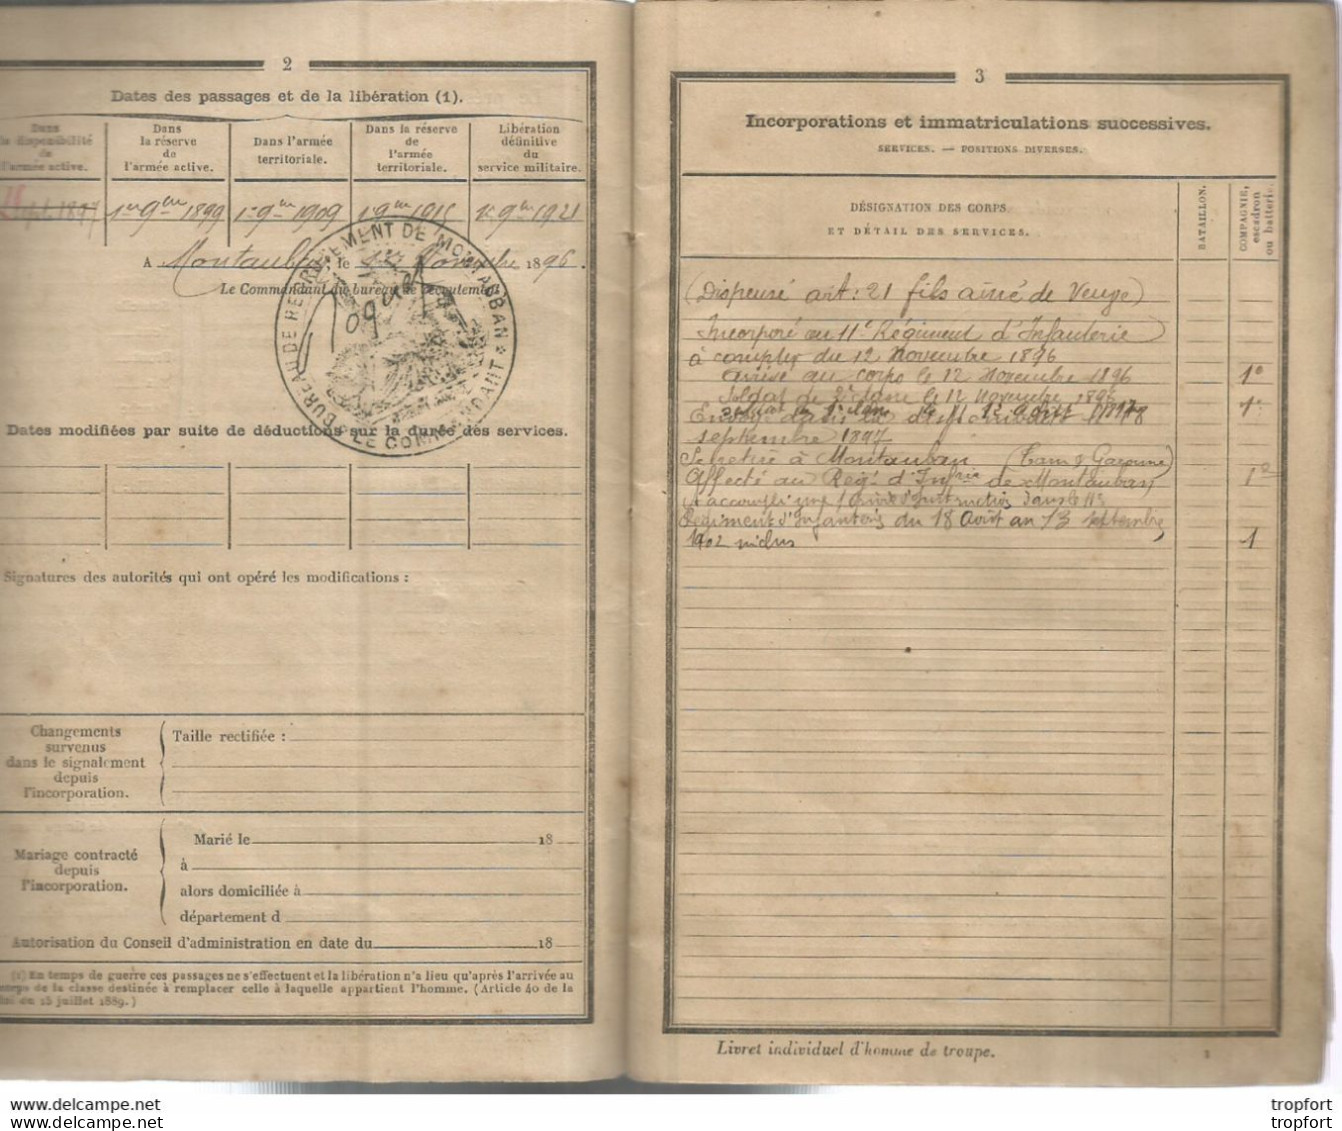 2
Dates des passages et de la libération (1).
Dans la disponibilité de l'armée active.
Dans la réserve de l'armée active.
Dans l'armée territoriale.
Dans la réserve de l'armée territoriale.
Libération définitive du service militaire.
Sept. 1897
1er 9bre 1899
1er 9bre 1909
1er 9bre 1915
1er 9bre 1921
A Montauban, le 1er Novembre 1896.
Le Commandant du bureau de recrutement,
BUREAU DE RECRUTEMENT DE MONTAUBAN * LE COMMANDANT *
Dates modifiées par suite de déductions sur la durée des services.
Signatures des autorités qui ont opéré les modifications :
Changements
survenus
dans le signalement
depuis
l'incorporation.
Taille rectifiée :
Mariage contracté
depuis
l'incorporation.
Marié le 18
à
alors domiciliée à
département d
Autorisation du Conseil d'administration en date du 18
(1) En temps de guerre ces passages ne s'effectuent et la libération n'a lieu qu'après l'arrivée au
corps de la classe destinée à remplacer celle à laquelle appartient l'homme. (Article 40 de la
loi du 15 juillet 1889.)
3
Incorporations et immatriculations successives.
SERVICES. — POSITIONS DIVERSES.
DÉSIGNATION DES CORPS
ET DÉTAIL DES SERVICES.
BATAILLON.
COMPAGNIE, escadron ou batterie.
(Dispensé art: 21 fils aîné de Veuve)
Incorporé au 11e Régiment d'Infanterie
à compter du 12 Novembre 1896
arrivé au corps le 12 Novembre 1896 1e
Soldat de 2e classe le 12 Novembre 1896
1e
septembre 1897
Se retire à Montauban (Tarn & Garonne)
Affecté au Régt d'Infrie de Montauban 1e
a accompli une période d'instruction dans le 11e
Régiment d'Infanterie du 18 Août au 13 septembre
1902 inclus 1
Livret individuel d'homme de troupe.
www.delcampe.net
www.delcampe.net
tropfort
tropfort